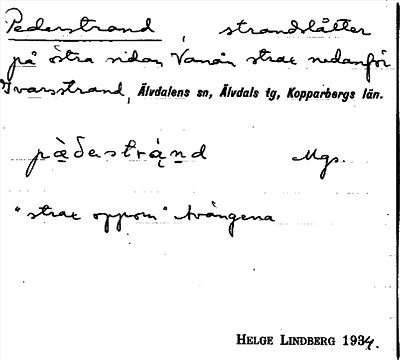 Pederstrand, strandslåtter
på östra sidan Vanån strax nedanför
Ivarsstrand, Älvdalens sn, Älvdals tg, Kopparbergs län.
pæ̀đestrą̀nd Mgs.
"strax oppom" tvängena
HELGE LINDBERG 1934.